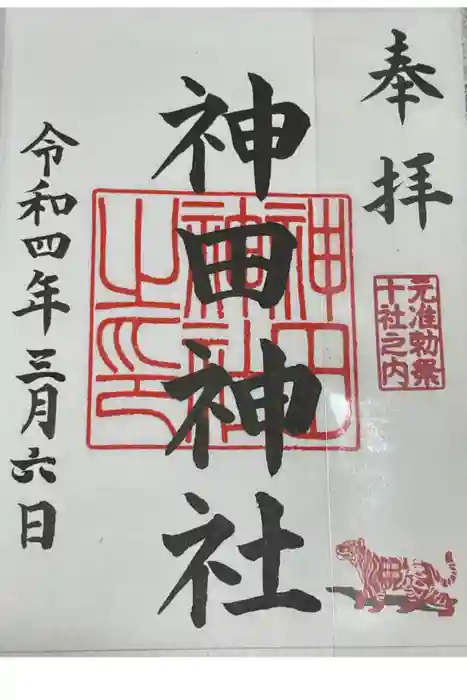 奉拝
元准勅祭
十社之内
神田神社
神田
神社
之印
令和四年三月六日